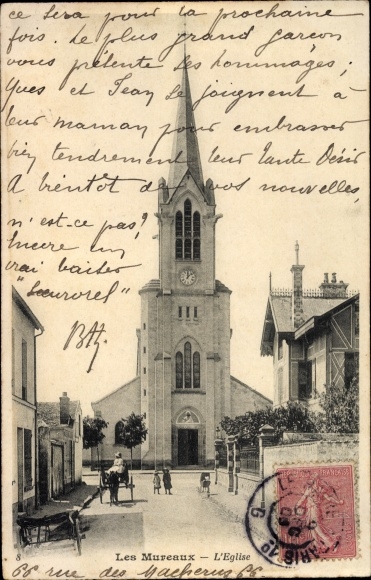 ce sera pour la prochaine
fois. Le plus grand garçon
vous présente ses hommages;
Yves et Jean se joignent à
leur maman pour embrasser
bien tendrement leur tante Désir
A bientôt de vos nouvelles,
n'est-ce pas?
Encore un
vrai baiser
8
Les Mureaux — L'Eglise
66 rue des 66
PARIS